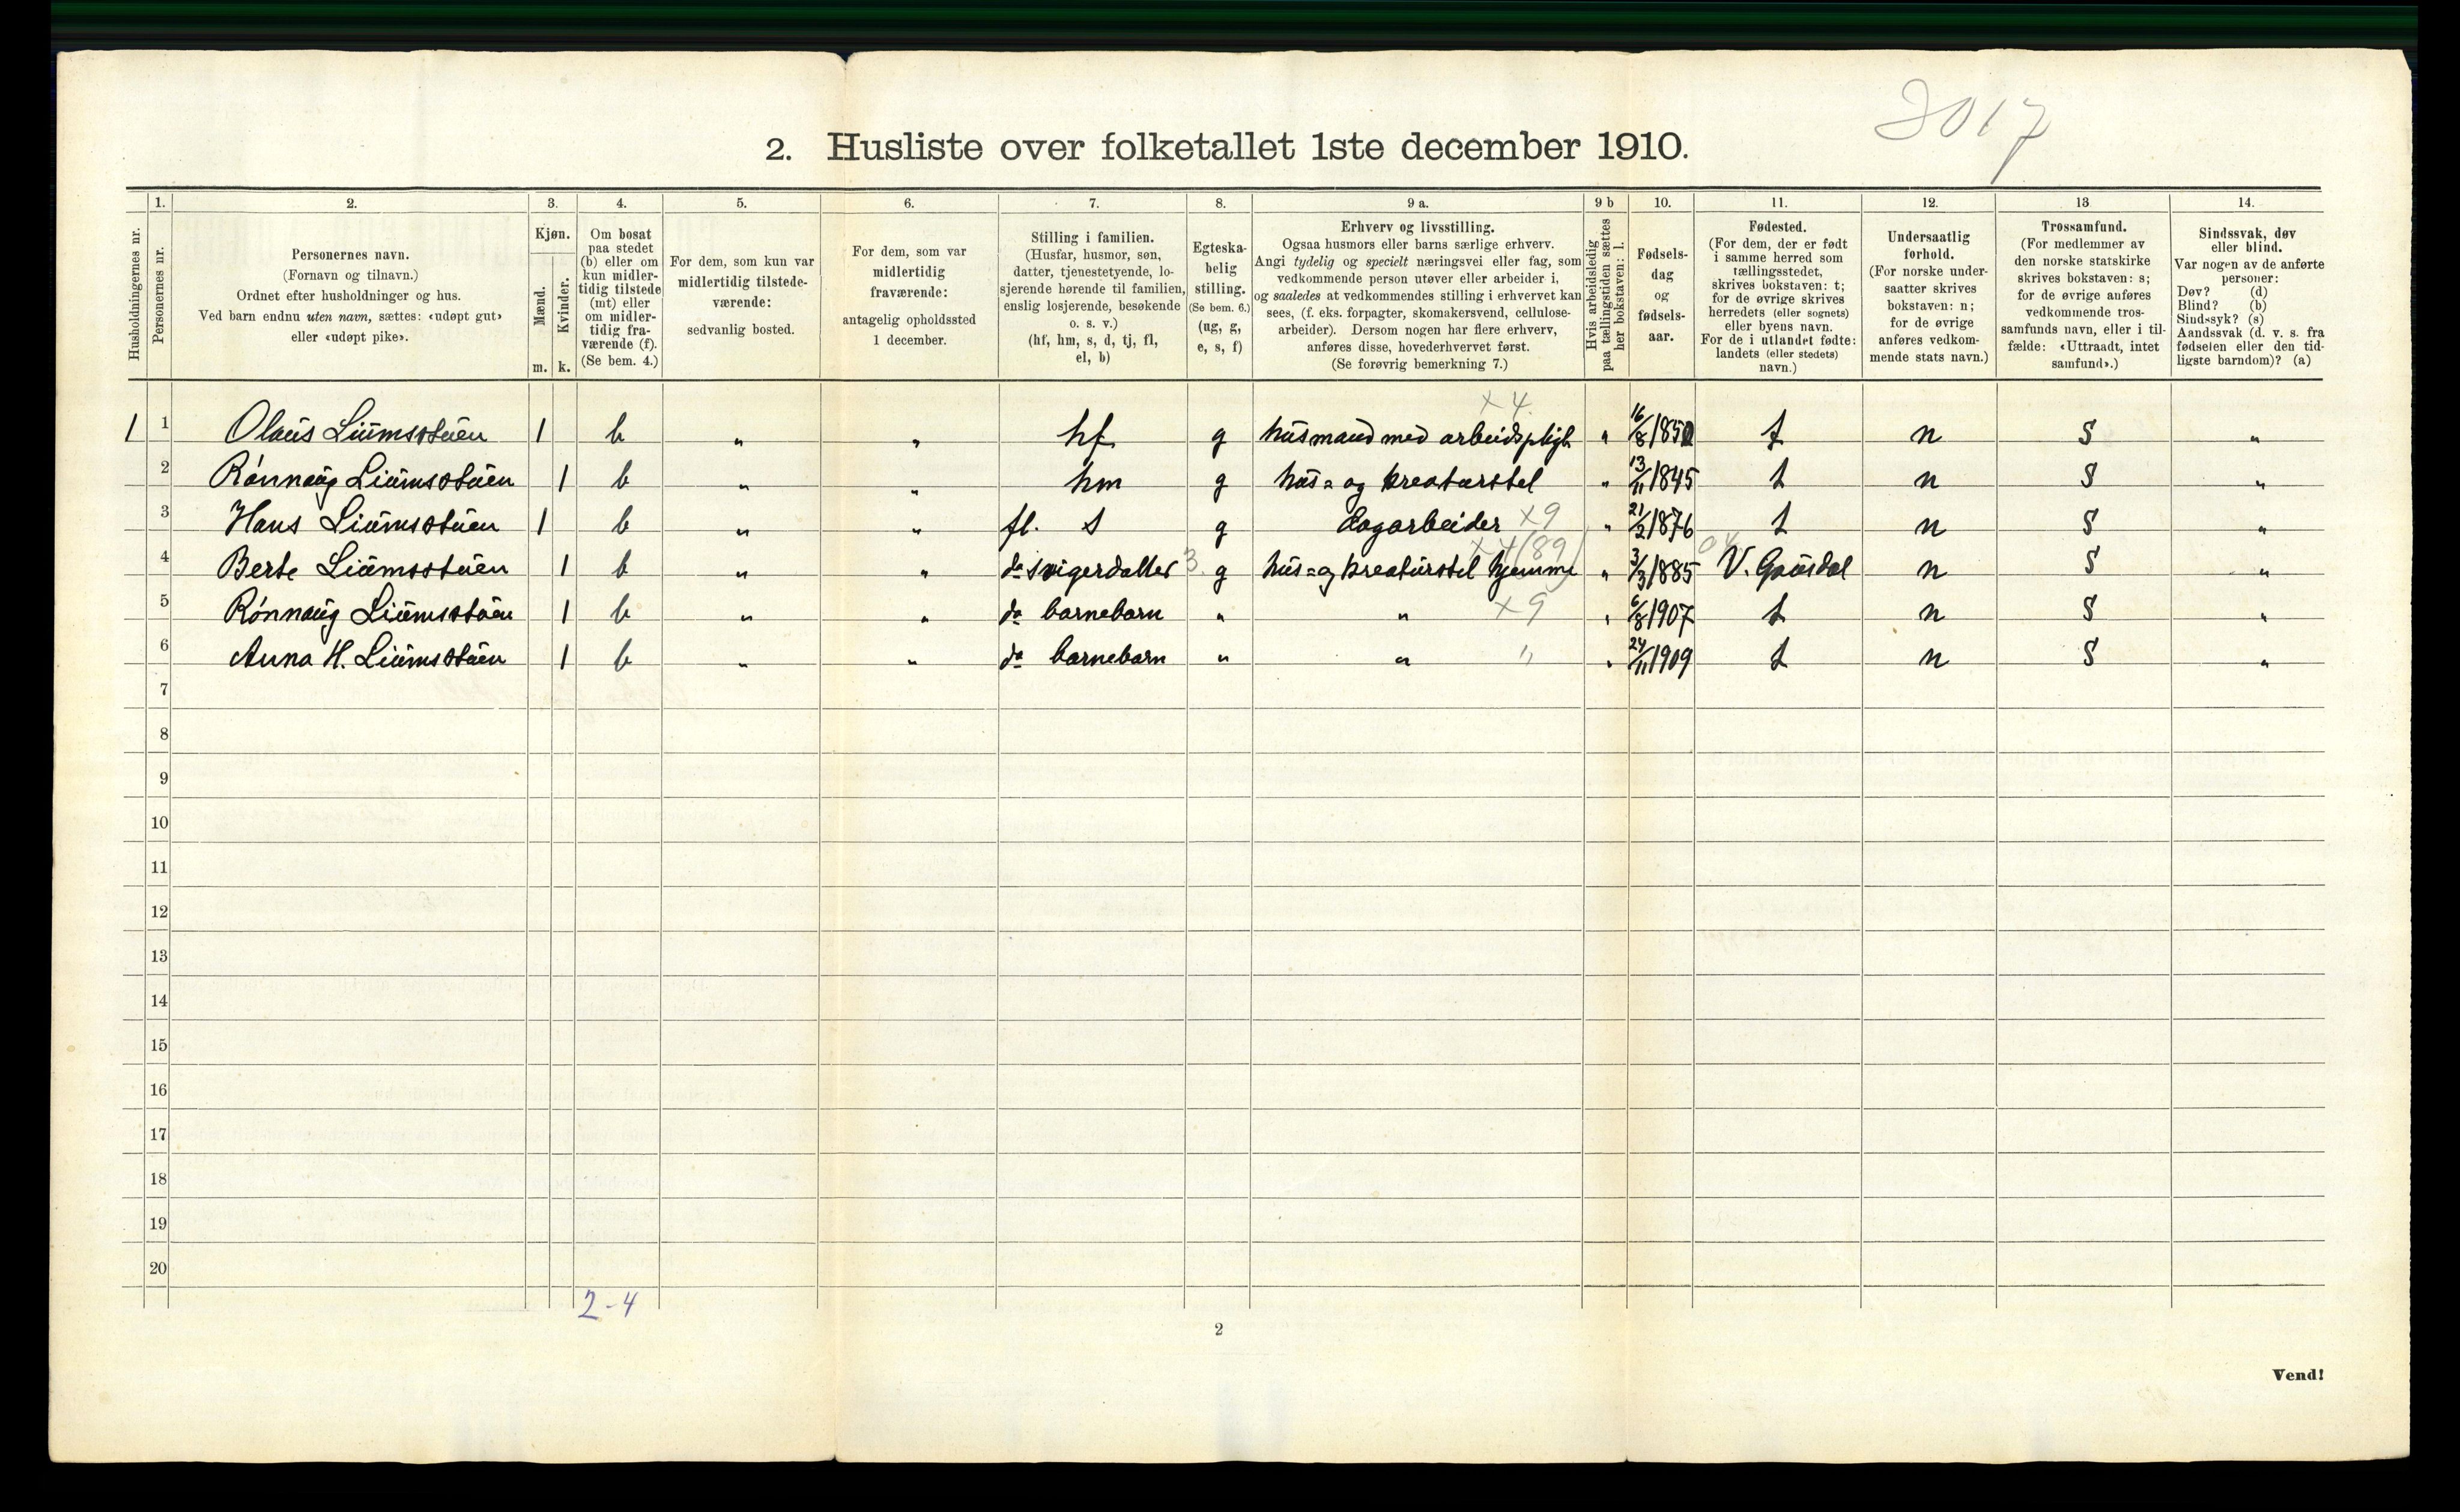 3017
2. Husliste over folketallet 1ste december 1910.
Husholdningernes nr.
1. Personernes nr.
2. Personernes navn. (Fornavn og tilnavn.) Ordnet efter husholdninger og hus. Ved barn endnu uten navn, sættes: «udøpt gut» eller «udøpt pike».
3. Kjøn. Mænd. m. Kvinder. k.
4. Om bosat paa stedet (b) eller om kun midlertidig tilstede (mt) eller om midlertidig fraværende (f). (Se bem. 4.)
5. For dem, som kun var midlertidig tilstedeværende: sedvanlig bosted.
6. For dem, som var midlertidig fraværende: antagelig opholdssted 1 december.
7. Stilling i familien. (Husfar, husmor, søn, datter, tjenestetyende, losjerende hørende til familien, enslig losjerende, besøkende o. s. v.) (hf, hm, s, d, tj, fl, el, b)
8. Egteskabelig stilling. (Se bem. 6.) (ug, g, e, s, f)
9 a. Erhverv og livsstilling. Ogsaa husmors eller barns særlige erhverv. Angi tydelig og specielt næringsvei eller fag, som vedkommende person utøver eller arbeider i, og saaledes at vedkommendes stilling i erhvervet kan sees, (f. eks. forpagter, skomakersvend, cellulosearbeider). Dersom nogen har flere erhverv, anføres disse, hovederhvervet først. (Se forøvrig bemerkning 7.)
9 b Hvis arbeidsledig paa tællingstiden sættes her bokstaven: l.
10. Fødselsdag og fødselsaar.
11. Fødested. (For dem, der er født i samme herred som tællingsstedet, skrives bokstaven: t; for de øvrige skrives herredets (eller sognets) eller byens navn. For de i utlandet fødte: landets (eller stedets) navn.)
12. Undersaatlig forhold. (For norske undersaatter skrives bokstaven: n; for de øvrige anføres vedkommende stats navn.)
13 Trossamfund. (For medlemmer av den norske statskirke skrives bokstaven: s; for de øvrige anføres vedkommende trossamfunds navn, eller i tilfælde: «Uttraadt, intet samfund».)
14. Sindssvak, døv eller blind. Var nogen av de anførte personer: Døv? (d) Blind? (b) Sindssyk? (s) Aandssvak (d. v. s. fra fødselen eller den tidligste barndom)? (a)
x 4
1 1 Olaus Liumsstuen 1 b " " hf g husmand med arbeidspligt " 16/8 1850 t n S "
2 Rønnaug Liumsstuen 1 b " " hm g hus= og kreaturstel " 13/11 1845 t n S "
3 Hans Liumsstuen 1 b " " fl. s g dagarbeider x9 " 21/2 1876 t n S "
x4(89) 04
4 Berte Liumsstuen 1 b " " do svigerdatter 3 g hus= og kreaturstel hjemme " 3/3 1885 V. Gausdal n S "
5 Rønnaug Liumsstuen 1 b " " do barnebarn " " x9 " 6/8 1907 t n S "
6 Anna H. Liumsstuen 1 b " " do barnebarn " " " " 24/11 1909 t n S "
7
8
9
10
11
12
13
14
15
16
17
18
19
20
2-4
2
Vend!